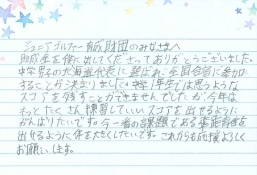 ジュニアゴルファー育成財団のみなさまへ
助成金を僕に出してくださってありがとうございました。
中学男子の北海道代表に選ばれ、全国合宿に参加
することが決まりました。中学1年生では思うような
スコアを残すことができませんでしたが、今年は
もっとたくさん練習していいスコアを出せるように
がんばりたいです。今一番の課題である飛距離を
出せるように体を大きくしたいです。これからも応援よろしく
お願いします。